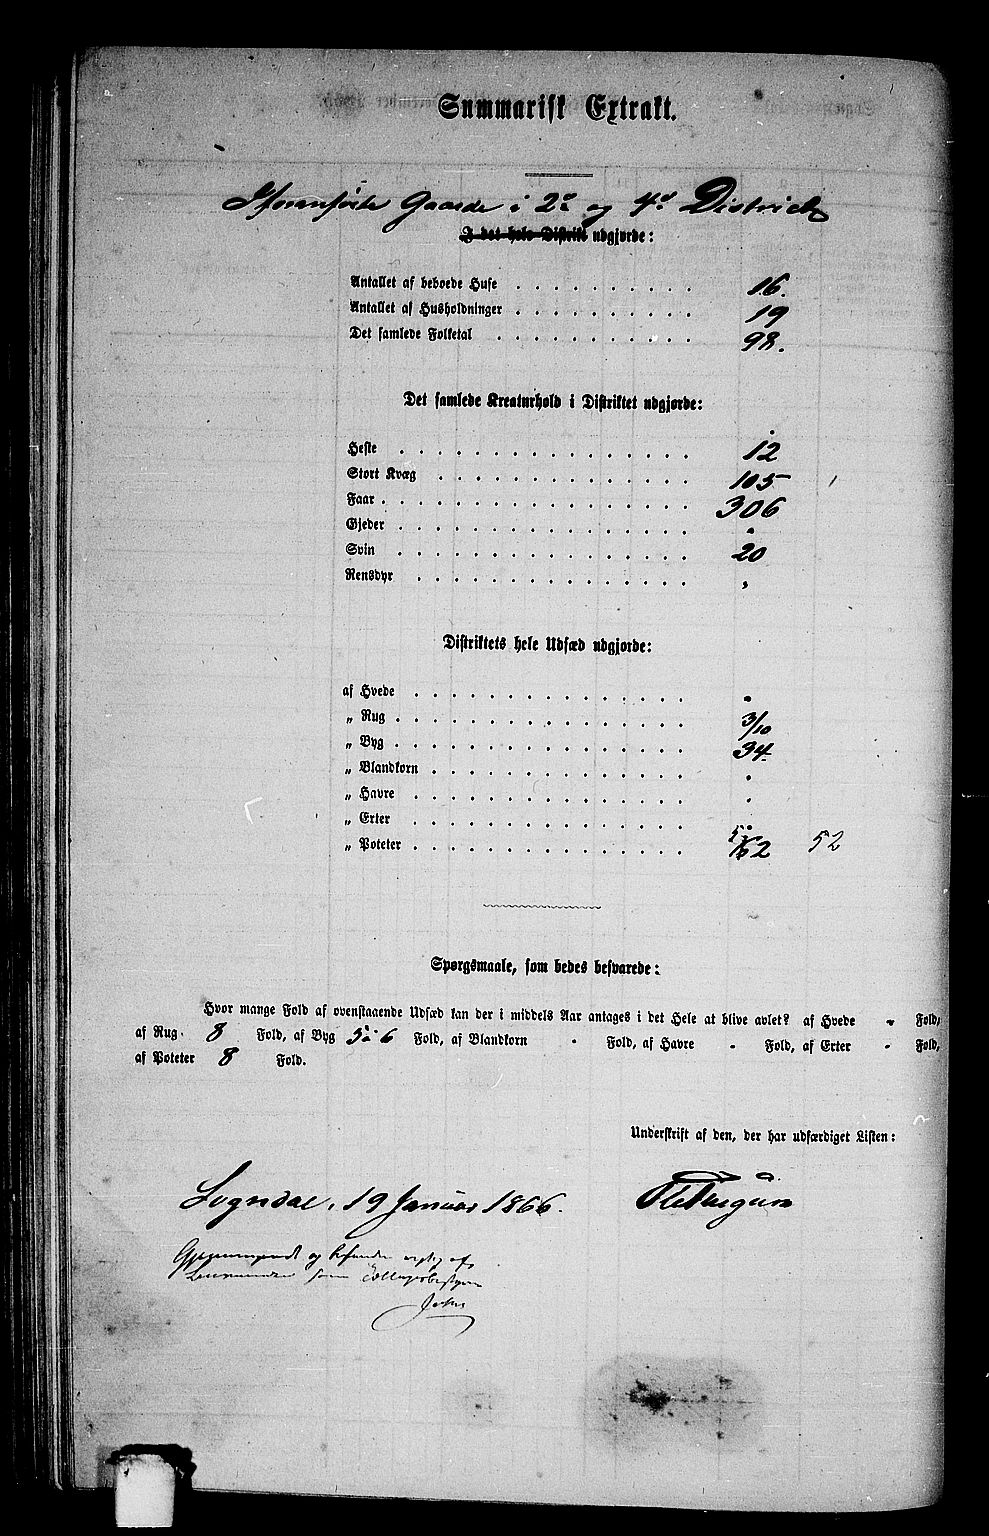 Summarisk Extrakt.
Gaarde i 2d og 4d District
I det hele Distrikt udgjorde:
Antallet af beboede Huse . . . . . . . . . . 16.
Antallet af Husholdninger . . . . . . . . . . 19
Det samlede Folketal . . . . . . . . . . . 98.
Det samlede Kreaturhold i Distriktet udgjorde:
Heste . . . . . . . . . . . . . . . . 12
Stort Kvæg . . . . . . . . . . . . . . 105
Faar . . . . . . . . . . . . . . . . . 306
Gjeder . . . . . . . . . . . . . . . . "
Svin . . . . . . . . . . . . . . . . 20
Rensdyr . . . . . . . . . . . . . . . "
Distriktets hele Udsæd udgjorde:
af Hvede . . . . . . . . . . . . . . . "
„ Rug . . . . . . . . . . . . . . . . 3/10
„ Byg . . . . . . . . . . . . . . . . 34.
„ Blandkorn . . . . . . . . . . . . . . "
„ Havre . . . . . . . . . . . . . . . "
„ Erter . . . . . . . . . . . . . . . "
„ Poteter . . . . . . . . . . . . . . . 52
Spørgsmaale, som bedes besvarede:
Hvor mange Fold af ovenstaaende Udsæd kan der i middels Aar antages i det Hele at blive avlet? af Hvede " Fold,
af Rug 8 Fold, af Byg 5 à 6 Fold, af Blandkorn " Fold, af Havre " Fold, af Erter " Fold,
af Poteter 8 Fold.
Underskrift af den, der har udfærdiget Listen:
Sogndal, 19 Januar 1866.
Gjennemgaaet og befunden rigtig af
Lensmanden som Tællingsbestyrer